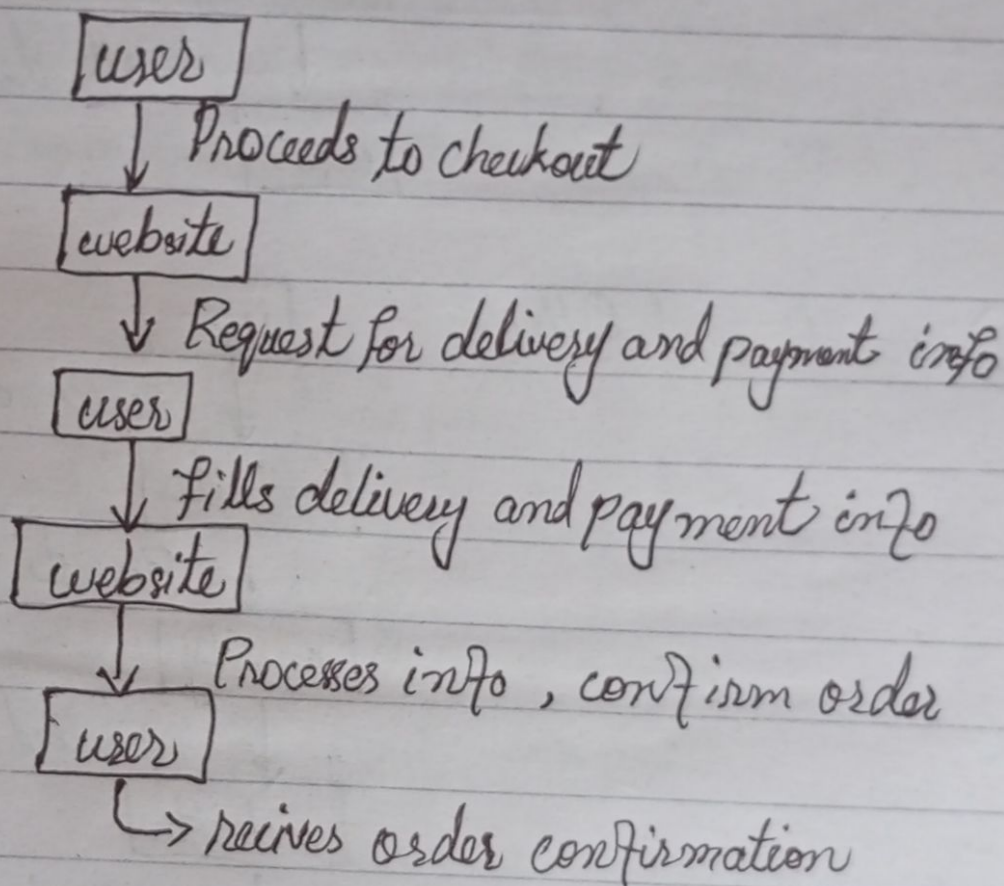 user
Proceeds to checkout
website
Request for delivery and payment info
user
fills delivery and payment info
website
Processes info , confirm order
user
recives order confirmation